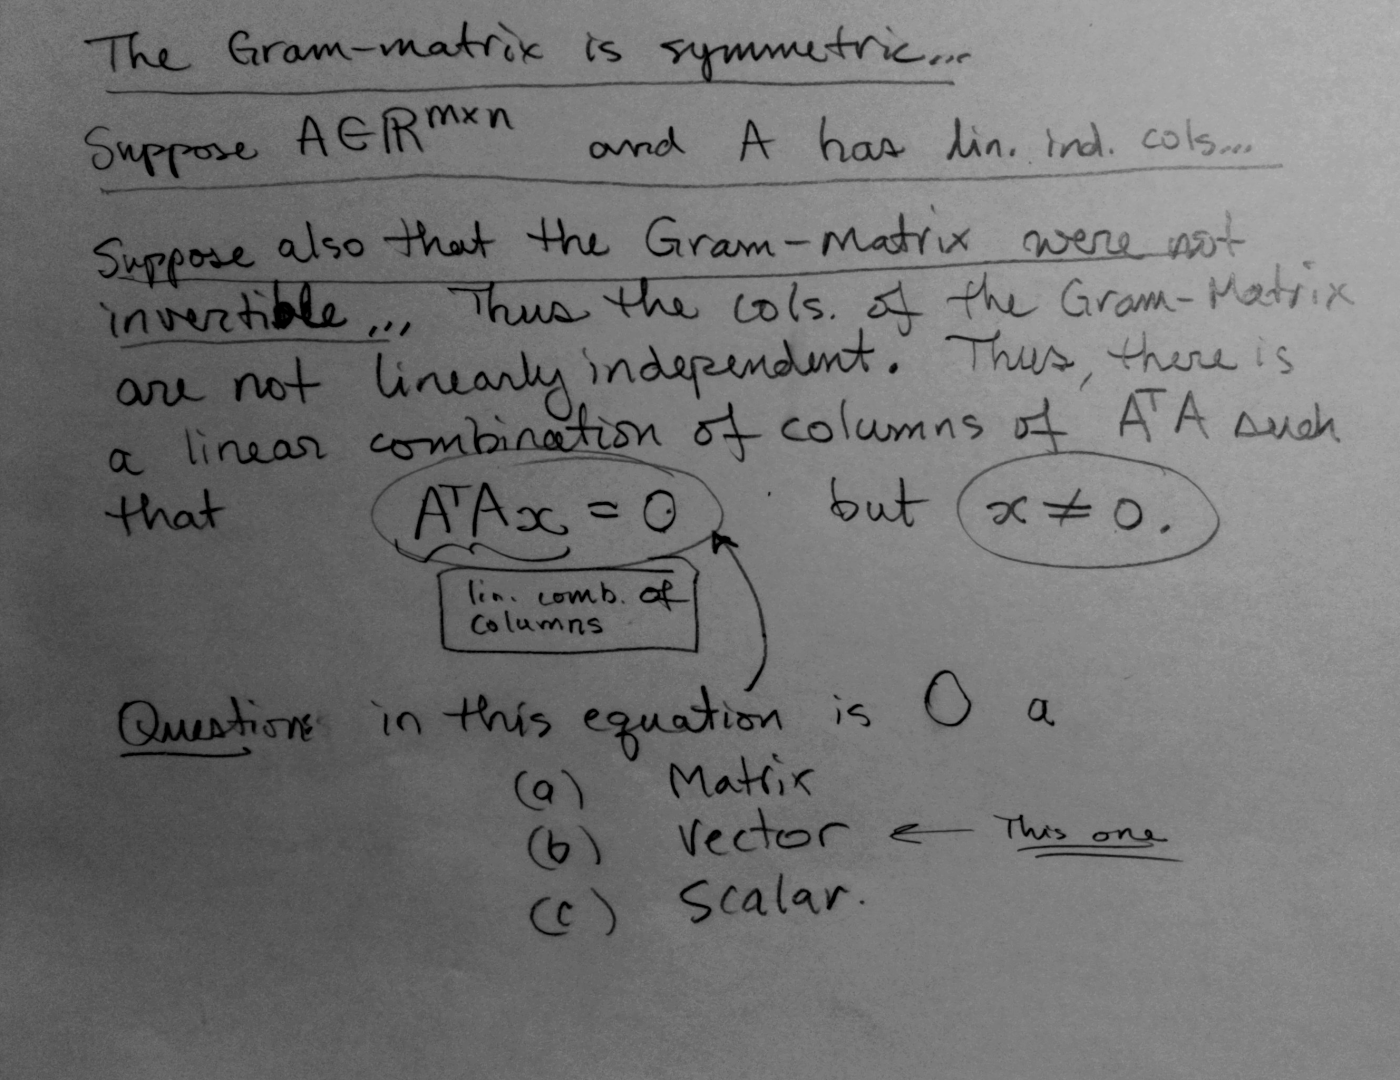 The Gram-matrix is symmetric...
Suppose A∈ℝᵐˣⁿ and A has lin. ind. cols...
Suppose also that the Gram-Matrix were not
invertible... Thus the cols. of the Gram-Matrix
are not linearly independent. Thus, there is
a linear combination of columns of AᵀA such
that AᵀAx = 0 but x ≠ 0.
lin. comb. of
columns
Question: in this equation is 0 a
(a) Matrix
(b) Vector ← This one
(c) Scalar.